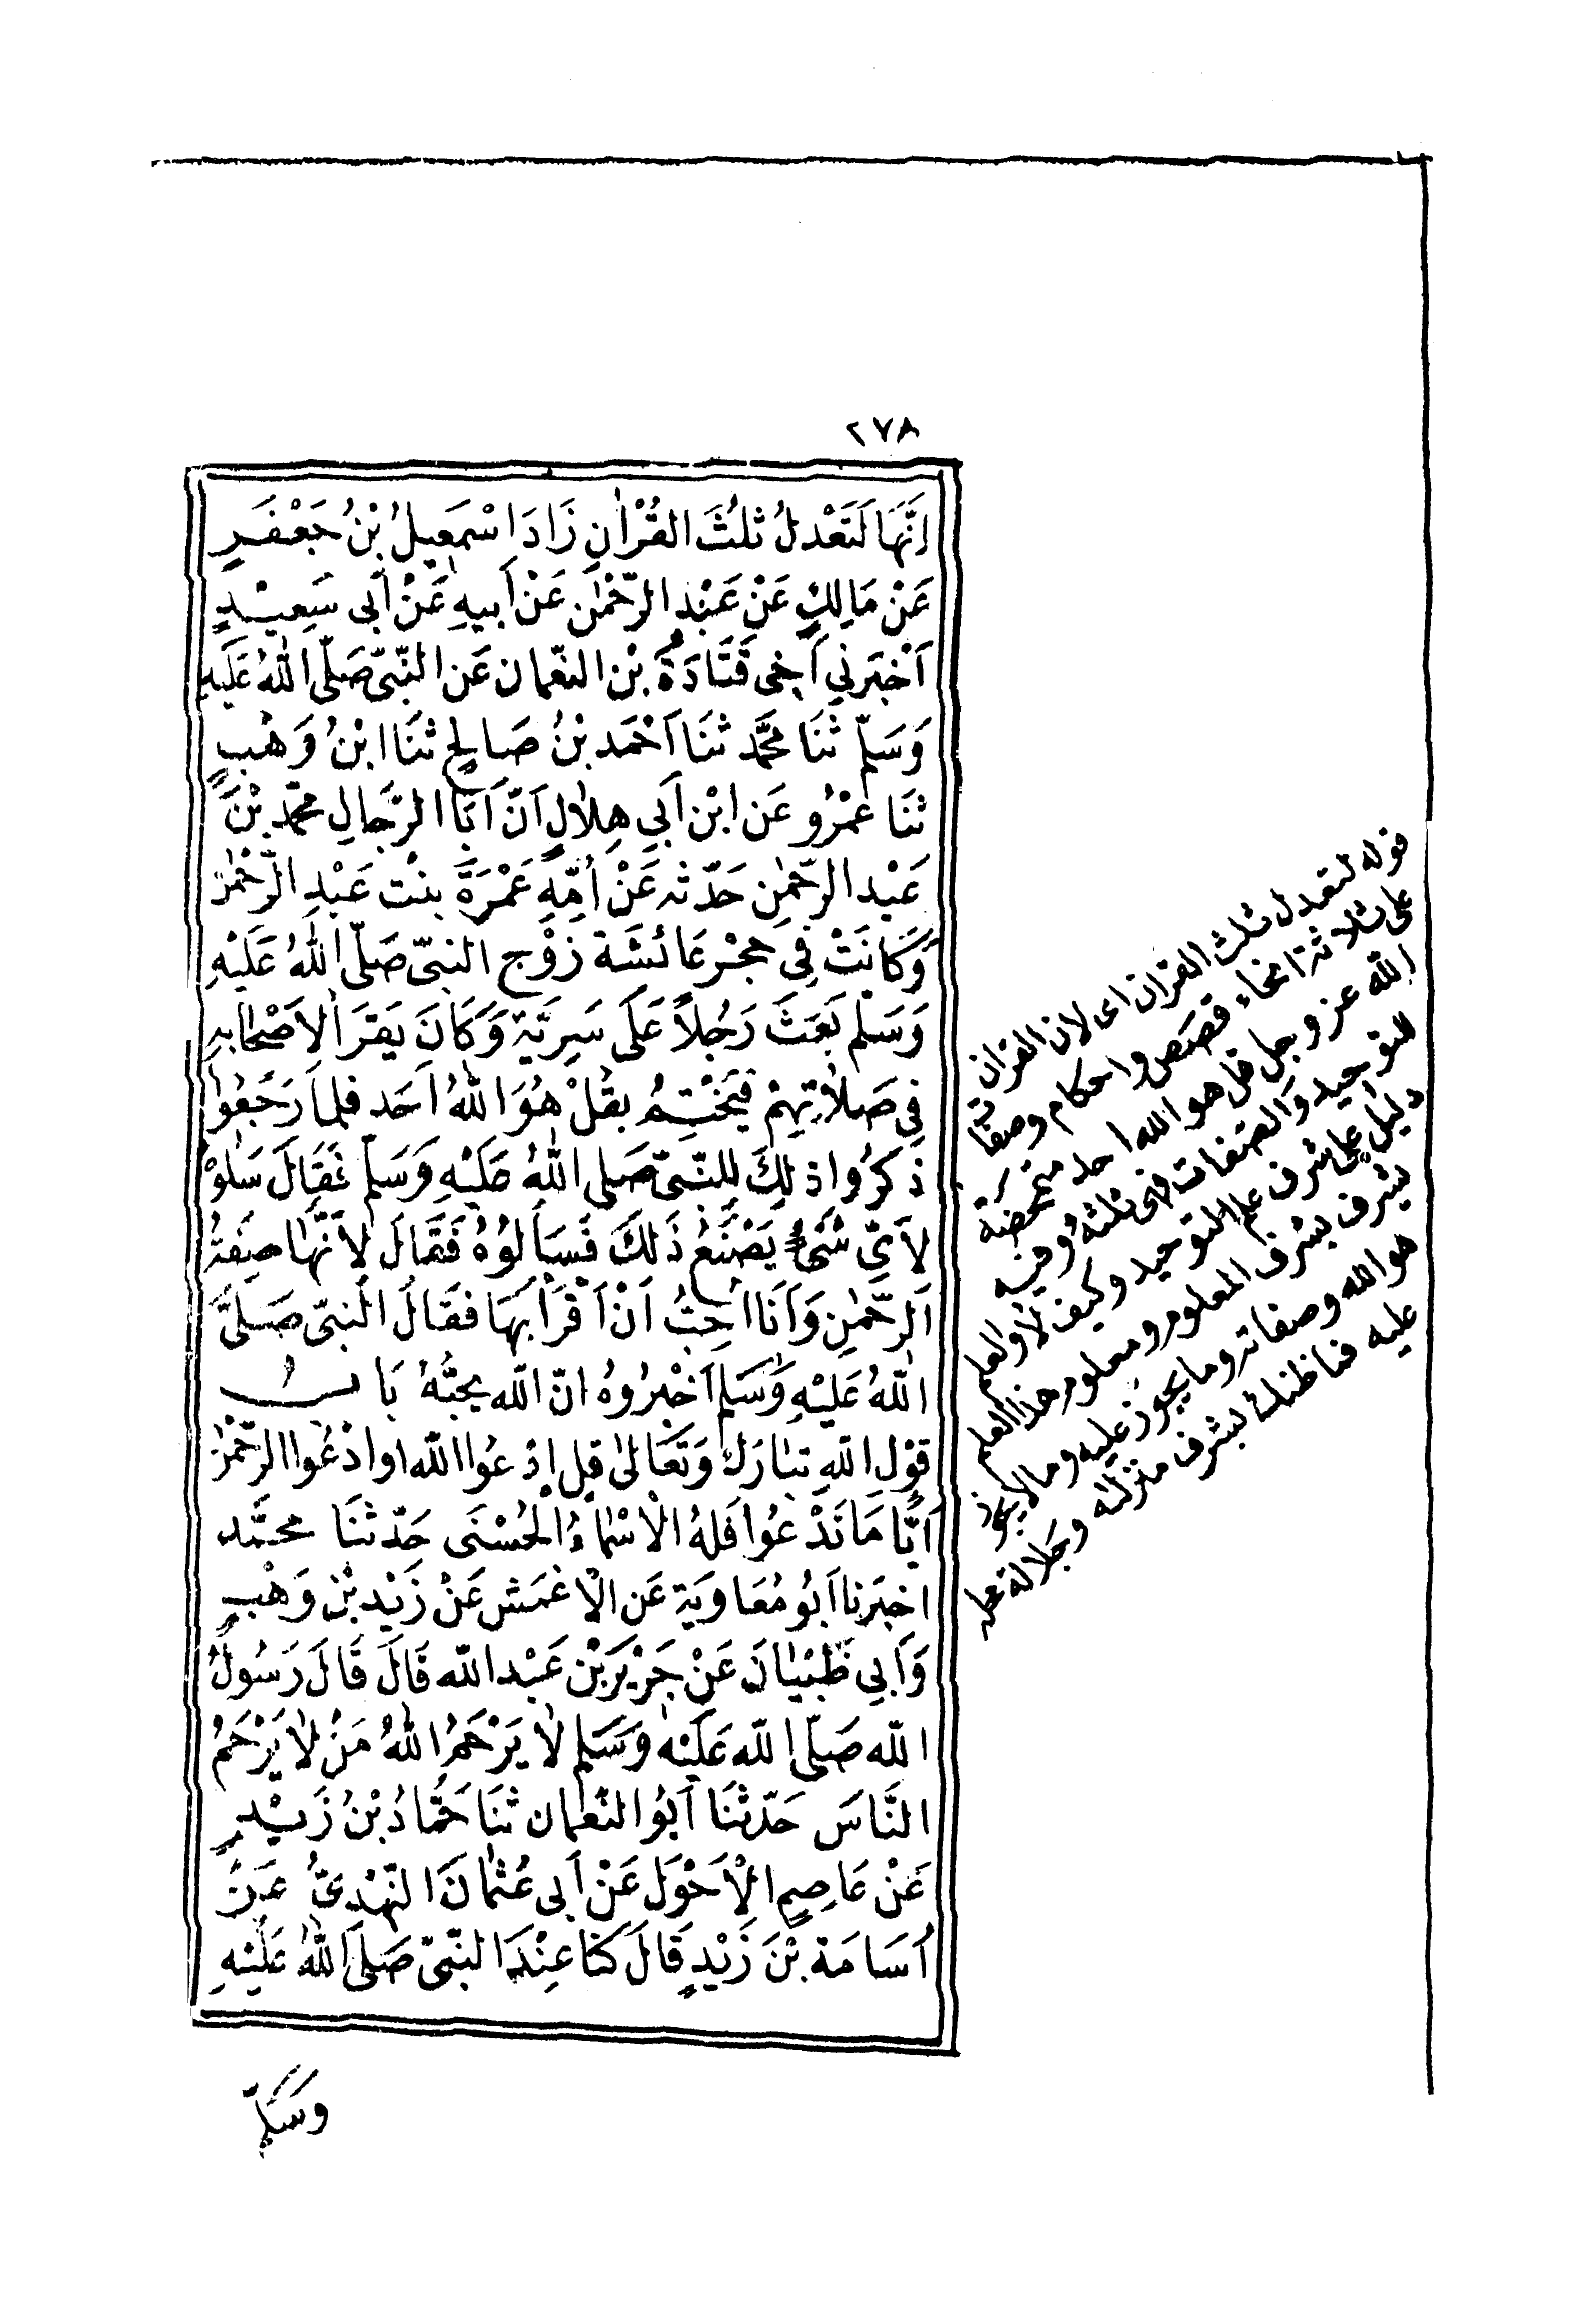 ٢٧٨
اِنَّهَا لَتَعْدِلُ ثُلُثَ القُرْاٰنِ زَادَ اسْمٰعِيلُ بْنُ جَعْفَرٍ
عَنْ مَالِكٍ عَنْ عَبْدِ الرَّحْمٰنِ عَنْ اَبِيهِ عَنْ اَبِى سَعِيْدٍ
اَخْبَرَنِي اَخِى قَتَادَةُ بْنُ النُّعْمَانِ عَنِ النَّبِىِّ صَلَّى اللّٰهُ عَلَيْهِ
وَسَلَّمَ ثَنَا مُحَمَّد ثَنَا اَحْمَد بْنُ صَالِحٍ ثَنَا ابْنُ وَهْبٍ
ثَنَا عَمْرُو عَنِ ابْنِ اَبِي هِلَالٍ اَنَّ اَبَا الرِّجَالِ مُحَمَّد بْنَ
عَبْدِ الرَّحْمٰنِ حَدَّثَهُ عَنْ اُمِّهِ عَمْرَةَ بِنْت عَبْدِ الرَّحْمٰنِ
وَكَانَتْ فِي حِجْرِ عَائِشَةَ زَوْجِ النَّبِىِّ صَلَّى اللّٰهُ عَلَيْهِ
وَسَلَّمَ بَعَثَ رَجُلاً عَلَى سَرِيَّةٍ وَكَانَ يَقْرَأ لِاَصْحَابِهِ
فِى صَلاَتِهِمْ فَيَخْتِمُ بِقُلْ هُوَ اللّٰهُ اَحَد فَلَمَّا رَجَعُوا
ذَكَرُوا ذٰلِكَ لِلنَّبِىِّ صَلَّى اللّٰهُ عَلَيْهِ وَسَلَّمَ فَقَالَ سَلُوْهُ
لِأَىِّ شَىْءٍ يَصْنَعُ ذَلِكَ فَسَأَلُوهُ فَقَالَ لأَنَّهَا صِفَةُ
الرَّحْمٰنِ وَاَنَا اُحِبُّ اَنْ اَقْرَأَ بِهَا فَقَالَ النَّبِىُّ صَلَّى
اللّٰهُ عَلَيْهِ وَسَلَّمَ اَخْبِرُوهُ انَّ اللّٰه يُحِبُّهُ بَابُ
قَوْلِ اللّٰهِ تَبَارَكَ وَتَعَالَى قُلِ ادْعُوا اللّٰه اوِ ادْعُوا الرَّحْمٰنَ
اَيًّا مَا تَدْعُوا فَلَهُ الْاَسْمَاءُ الحُسْنَى حَدَّثَنَا مُحَمَّد
اخْبَرَنَا اَبُو مُعَاوِيَةَ عَنِ الْاَعْمَشِ عَنْ زَيْدِ بْنِ وَهْبٍ
وَاَبِي ظَبْيَانَ عَنْ جَرِيْرِ بْنِ عَبْدِ اللّٰه قَالَ قَالَ رَسُولُ
اللّٰه صَلَّى اللّٰه عَلَيْهِ وَسَلَّمَ لاَ يَرْحَمُ اللّٰهُ مَنْ لاَ يَرْحَمُ
النَّاسَ حَدَّثَنَا اَبُو النُّعْمَان ثَنَا حَمَّادُ بْنُ زَيْدٍ
عَنْ عَاصِمٍ الْاَحْوَلِ عَنْ اَبِى عُثْمَانَ النَّهْدِىِّ عَنْ
اُسَامَةَ بْنِ زَيْدٍ قَالَ كُنَّا عِنْدَ النَّبِىِّ صَلَّى اللّٰهُ عَلَيْهِ
وَسَلَّمَ
قوله لتعدل ثلث القرآن اى لان القرآن
على ثلاثة انحاء قصص واحكام وصفات
الله عز وجل قل هو الله احد متمحضة
للتوحيد والصفات فهى ثلثه وفيه
دليل على شرف علم التوحيد وكيف لا والعلم
يشرف بشرف المعلوم ومعلوم هذا العلم
هو الله وصفاته وما يجوز عليه وما لا يجوز
عليه فما ظنك بشرف منزلته وجلالة محله